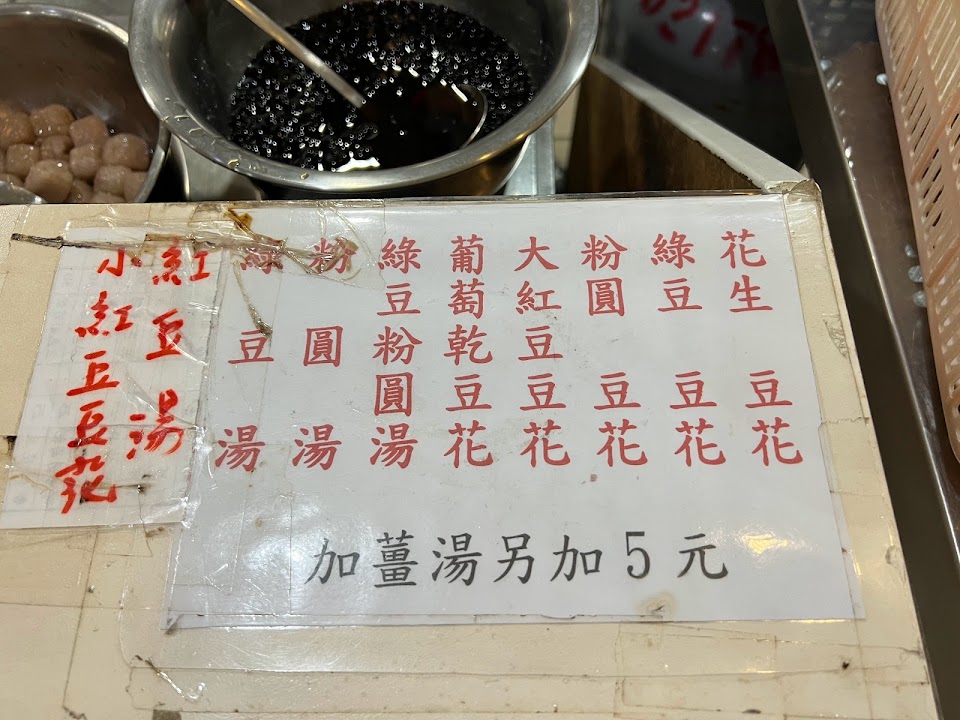 花生豆花
綠豆豆花
粉圓豆花
大紅豆豆花
葡萄乾豆花
綠豆粉圓湯
粉圓湯
綠豆湯
紅豆湯
小紅豆豆花
加薑湯另加5元